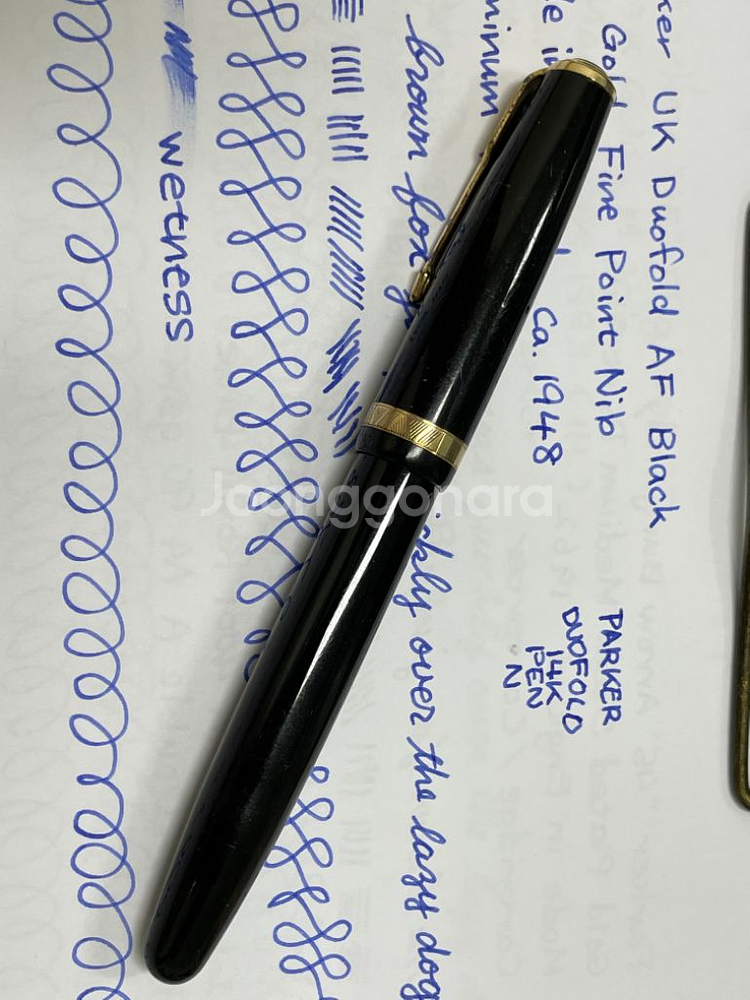 ker UK Duofold AF Black
Gold Fine Point Nib
Ca. 1948
minum
PARKER
DUOFOLD
14K
PEN
N
brown fox ckly over the lazy dog
wetness
Joonggonara